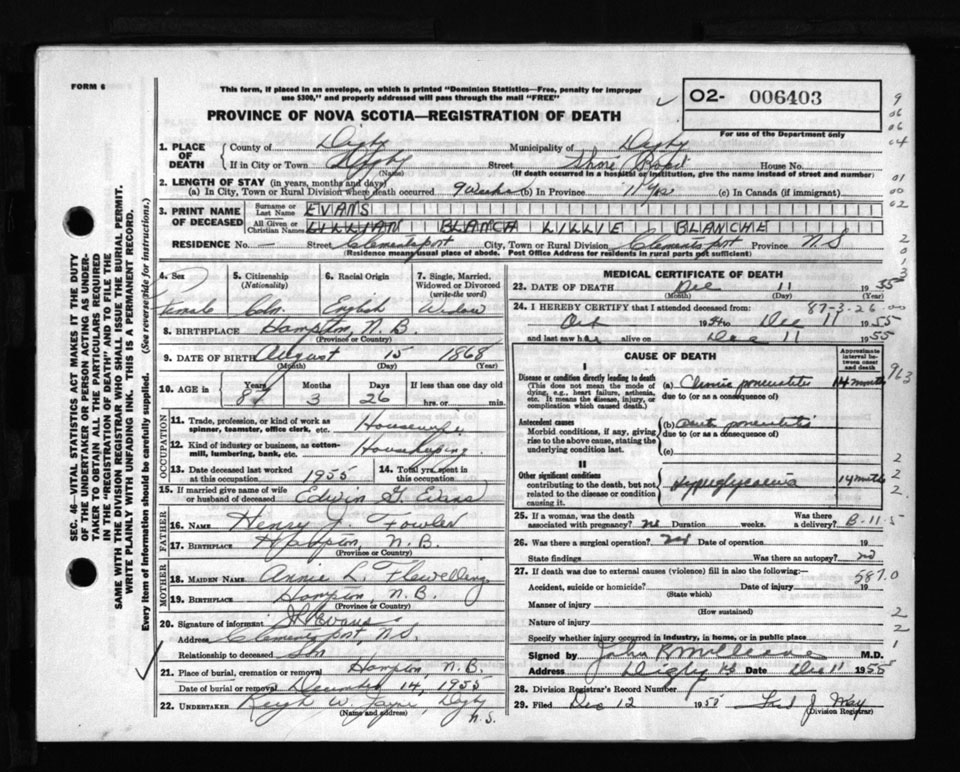 FORM 6
This form, if placed in an envelope, on which is printed "Dominion Statistics—Free, penalty for improper
use $300," and properly addressed will pass through the mail "FREE"
O2- 006403
For use of the Department only
PROVINCE OF NOVA SCOTIA—REGISTRATION OF DEATH
1. PLACE OF DEATH
County of Digby Municipality of Digby
If in City or Town Digby Street House No.
(Name) (If death occurred in a hospital or institution, give the name instead of street and number)
2. LENGTH OF STAY (in years, months and days)
(a) In City, Town or Rural Division where death occurred 9 weeks (b) In Province 11 yrs (c) In Canada (if immigrant)
3. PRINT NAME OF DECEASED
Surname or Last Name EVANS
All Given or Christian Names LILLIAN BLANCA LILLIE BLANCHE
RESIDENCE No. — Street Clementsport City, Town or Rural Division Clementsport Province N.S
(Residence means usual place of abode. Post Office Address for residents in rural parts not sufficient)
4. Sex Female
5. Citizenship (Nationality) Cdn.
6. Racial Origin English
7. Single, Married, Widowed or Divorced (write the word) Widow
8. BIRTHPLACE Hampton, N.B.
(Province or Country)
9. DATE OF BIRTH August 15 1868
(Month) (Day) (Year)
10. AGE Years 87 Months 3 Days 26 If less than one day old hrs. or min.
OCCUPATION
11. Trade, profession, or kind of work as spinner, teamster, office clerk, etc. Housewife
12. Kind of industry or business, as cotton-mill, lumbering, bank, etc. Housekeeping
13. Date deceased last worked at this occupation 1955
14. Total yrs. spent in this occupation
15. If married give name of wife or husband of deceased Edwin G. Evans
FATHER
16. NAME Henry J. Fowler
17. BIRTHPLACE Hampton, N.B.
(Province or Country)
MOTHER
18. MAIDEN NAME Annie L. Flewelling
19. BIRTHPLACE Hampton, N.B.
(Province or Country)
20. Signature of informant Evans
Address Clementsport, N.S.
Relationship to deceased Son
21. Place of burial, cremation or removal Hampton, N.B.
Date of burial or removal December 14, 1955
22. UNDERTAKER W. Jayne, Digby N.S.
(Name and address)
MEDICAL CERTIFICATE OF DEATH
23. DATE OF DEATH Dec 11 1955
(Month) (Day) (Year)
24. I HEREBY CERTIFY that I attended deceased from 87-3-26
Oct 1954 to Dec 11 1955
and last saw her alive on Dec 11 1955
CAUSE OF DEATH
Approximate interval between onset and death
I
Disease or condition directly leading to death
(This does not mean the mode of dying, e.g., heart failure, asthenia, etc. It means the disease, injury, or complication which caused death.)
(a) Chronic pancreatitis 14 months
due to (or as a consequence of)
Antecedent causes
Morbid conditions, if any, giving rise to the above cause, stating the underlying condition last.
(b) Acute pancreatitis
due to (or as a consequence of)
(c)
II
Other significant conditions
contributing to the death, but not related to the disease or condition causing it.
Hypoglycaemia 14 months
25. If a woman, was the death associated with pregnancy? no Duration weeks. Was there a delivery? B-11-5
26. Was there a surgical operation? no Date of operation 19
State findings Was there an autopsy? no
27. If death was due to external causes (violence) fill in also the following:—
587.0
Accident, suicide or homicide? Date of injury 19
(State which)
Manner of injury
(How sustained)
Nature of injury
Specify whether injury occurred in industry, in home, or in public place
Signed by John R. M.D.
Address Digby NS Date Dec 11 1955
28. Division Registrar's Record Number
29. Filed Dec 12 1955 Fred J. May
(Division Registrar)
SEC. 46—VITAL STATISTICS ACT MAKES IT THE DUTY
OF THE UNDERTAKER OR PERSON ACTING AS UNDER-
TAKER TO OBTAIN ALL THE PARTICULARS REQUIRED
IN THE "REGISTRATION OF DEATH" AND TO FILE THE
SAME WITH THE DIVISION REGISTRAR WHO SHALL ISSUE THE BURIAL PERMIT.
WRITE PLAINLY WITH UNFADING INK. THIS IS A PERMANENT RECORD.
Every item of information should be carefully supplied. (See reverse side for instructions.)